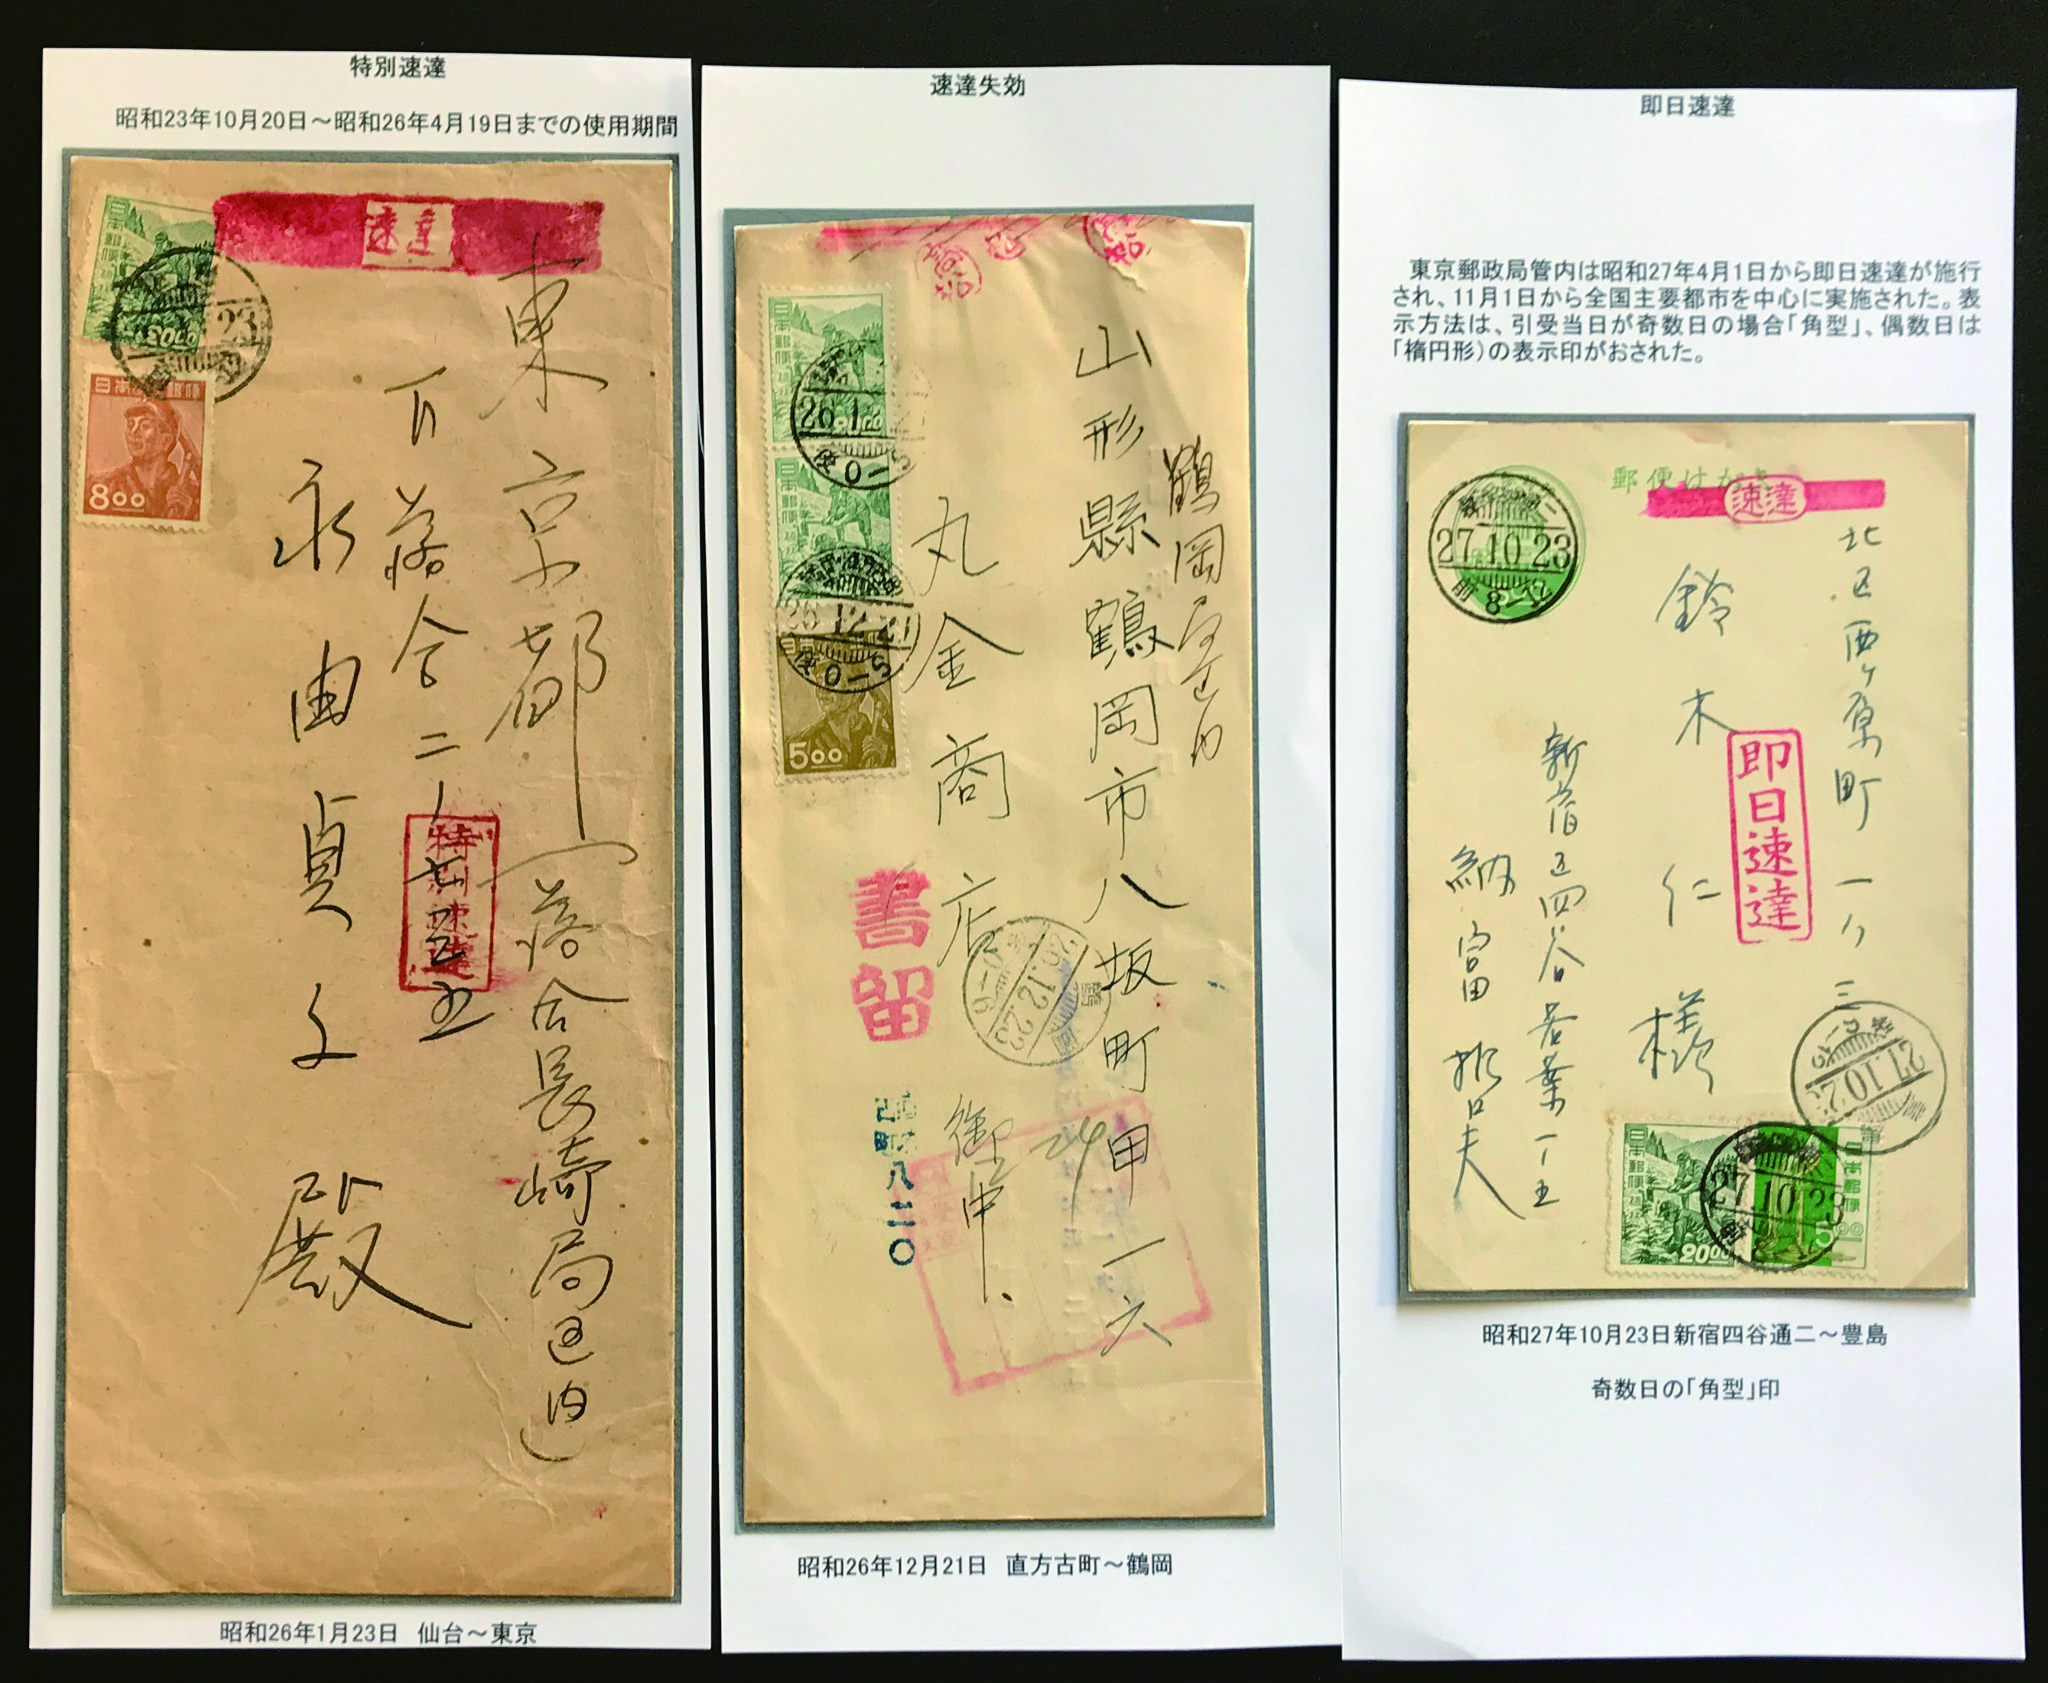 特別速達
昭和23年10月20日～昭和26年4月19日までの使用期間
速達
日本郵便
20.00
23
日本郵便
8.00
東京都
下落合二ノ七五五
特別速達
永田貞子
殿
昭和26年1月23日 仙台～東京
速達失効
日本郵便
26.1
便0-5
日本郵便
26.12.21
便0-5
5.00
山形縣鶴岡市八坂町甲一六
鶴岡局区内
丸金商店
御中
書留
古町
八二〇
26.12.23
0-6
昭和26年12月21日 直方古町～鶴岡
即日速達
東京郵政局管内は昭和27年4月1日から即日速達が施行
され、11月1日から全国主要都市を中心に実施された。表
示方法は、引受当日が奇数日の場合「角型」、偶数日は
「楕円形）の表示印がおされた。
郵便はがき
速達
27.10.23
前8-12
北区西ヶ原町一ノ三
鈴木仁様
即日速達
新宿区四谷若葉一ノ五
納富
日本郵便
20.00
27.10.23
日本郵便
5.00
昭和27年10月23日新宿四谷通二～豊島
奇数日の「角型」印